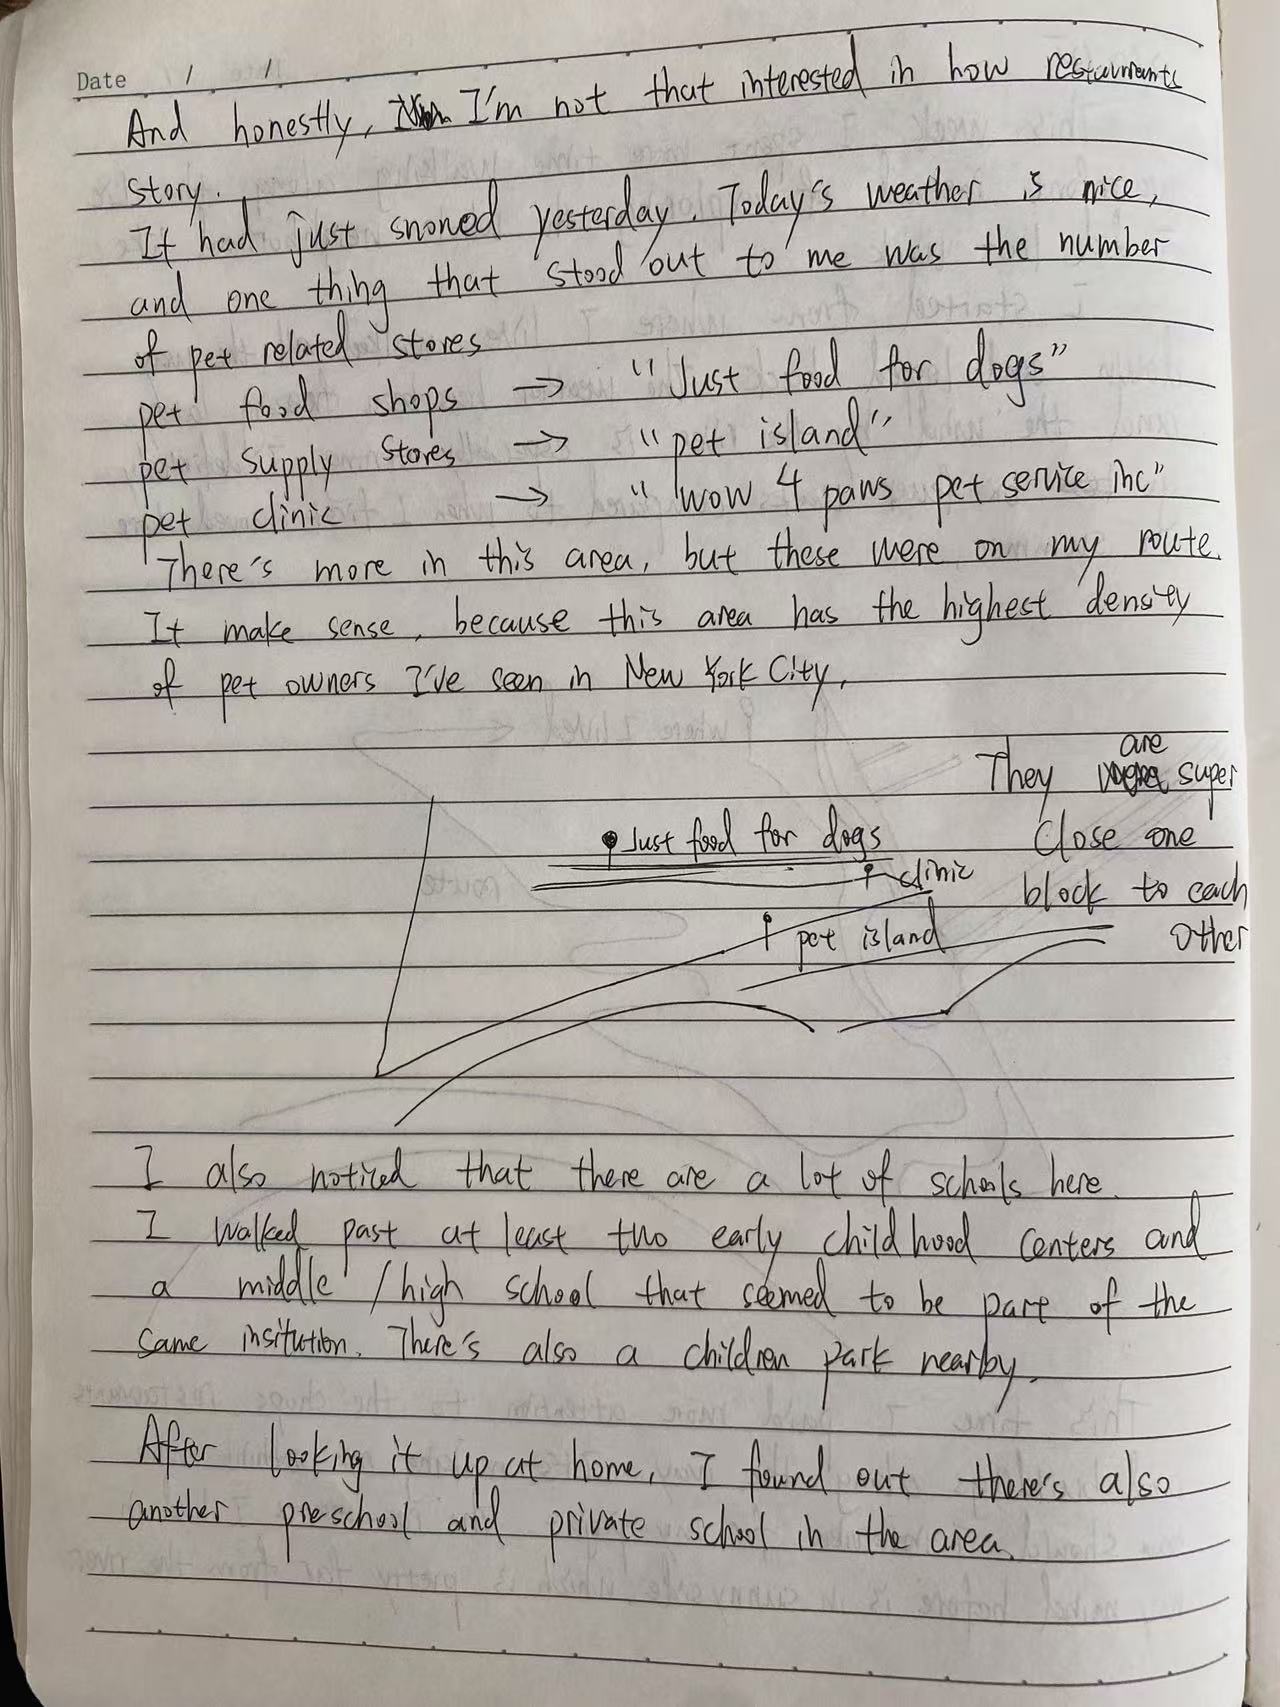 Date / /
And honestly, I'm not that interested in how restaurants
story.
It had just snowed yesterday. Today's weather is nice,
and one thing that stood out to me was the number
of pet related stores
pet food shops → "Just food for dogs"
pet supply stores → "pet island"
pet clinic → "wow 4 paws pet service inc"
There's more in this area, but these were on my route.
It make sense, because this area has the highest density
of pet owners I've seen in New York City.
They are super
close one
block to each
other
Just food for dogs
clinic
pet island
I also noticed that there are a lot of schools here.
I walked past at least two early childhood centers and
a middle / high school that seemed to be part of the
same insitution. There's also a children park nearby.
After looking it up at home, I found out there's also
another preschool and private school in the area.